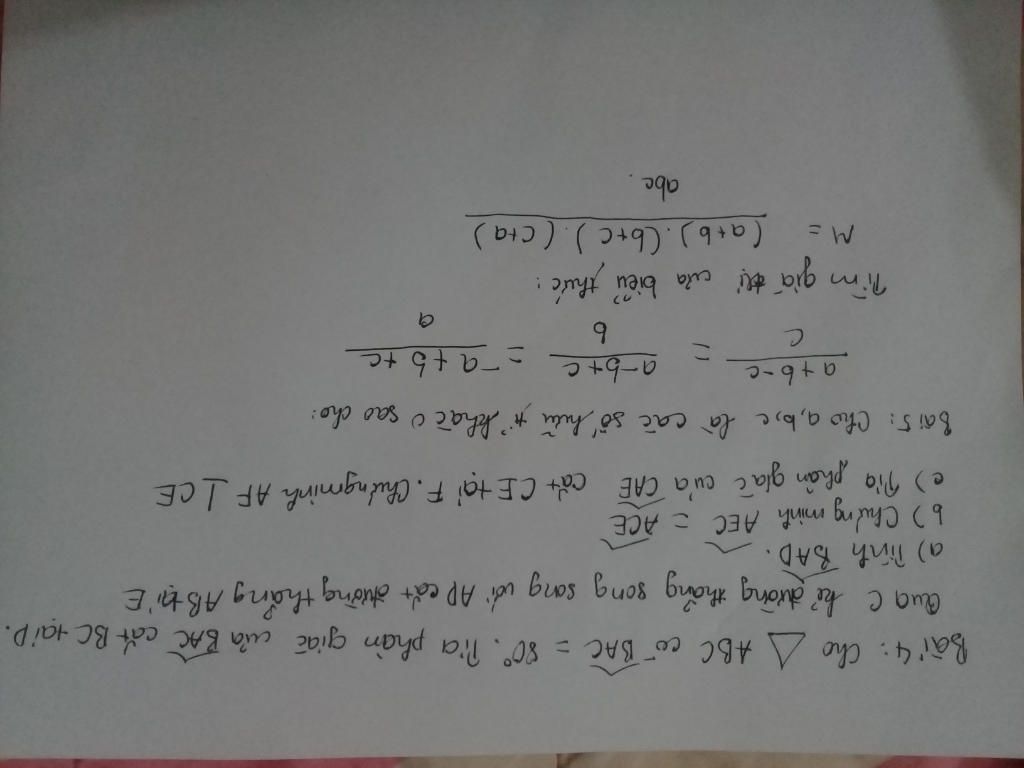 Bài 4: Cho △ ABC có BAC = 80°. Tia phân giác của BAC cắt BC tại D.
Qua C kẻ đường thẳng song song với AD cắt đường thẳng AB tại E
a) Tính BAD.
b) Chứng minh AEC = ACE
c) Tia phân giác của CAE cắt CE tại F. Chứng minh AF ⊥ CE
Bài 5: Cho a, b, c là các số hữu tỉ khác 0 sao cho:
a+b-c / c = a-b+c / b = -a+b+c / a
Tìm giá trị của biểu thức:
M = (a+b).(b+c).(c+a) / abc.